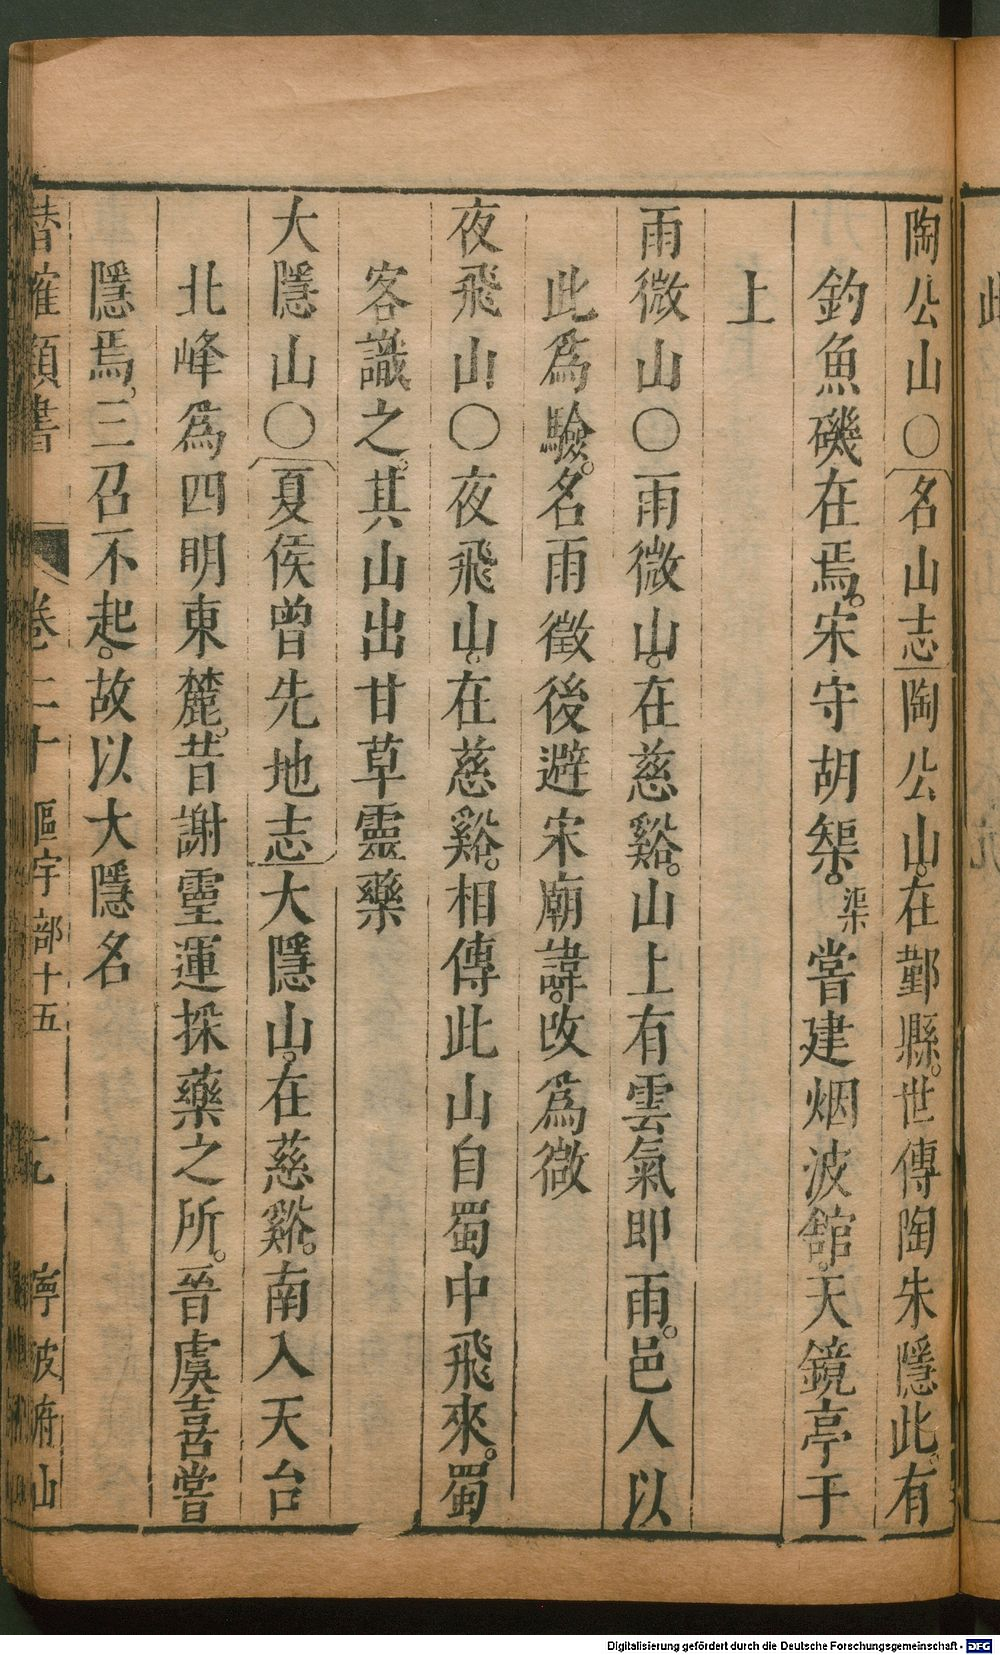 陶公山〇名山志陶公山。在鄞縣。世傳陶朱隱此。有
釣魚磯在焉。宋守胡榘。渠嘗建烟波館。天鏡亭于
上
雨微山〇雨微山。在慈谿。山上有雲氣即雨。邑人以
此爲驗。名雨徵後避宋廟諱。改爲微
夜飛山〇夜飛山。在慈谿。相傳此山自蜀中飛來。蜀
客識之。其山出甘草靈藥
大隱山〇夏侯曾先地志大隱山。在慈谿。南入天台
北峰爲四明東麓。昔謝靈運採藥之所。晉虞喜嘗
隱焉。三召不起。故以大隱名
潛確類書 卷二十 區宇部十五 九 寧波府山
Digitalisierung gefördert durch die Deutsche Forschungsgemeinschaft - DFG